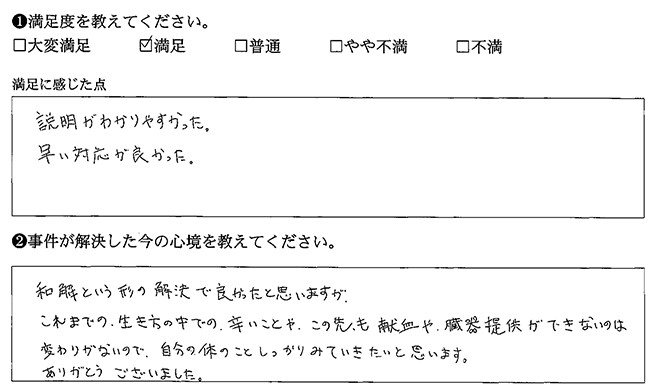 ❶満足度を教えてください。
□大変満足 ☑満足 □普通 □やや不満 □不満
満足に感じた点
説明がわかりやすかった。
早い対応が良かった。
❷事件が解決した今の心境を教えてください。
和解という形の解決で良かったと思いますが、
これまでの、生き方の中での、辛いことや、この先も献血や、臓器提供ができないのは
変わりがないので、自分の体のことしっかりみていきたいと思います。
ありがとうございました。